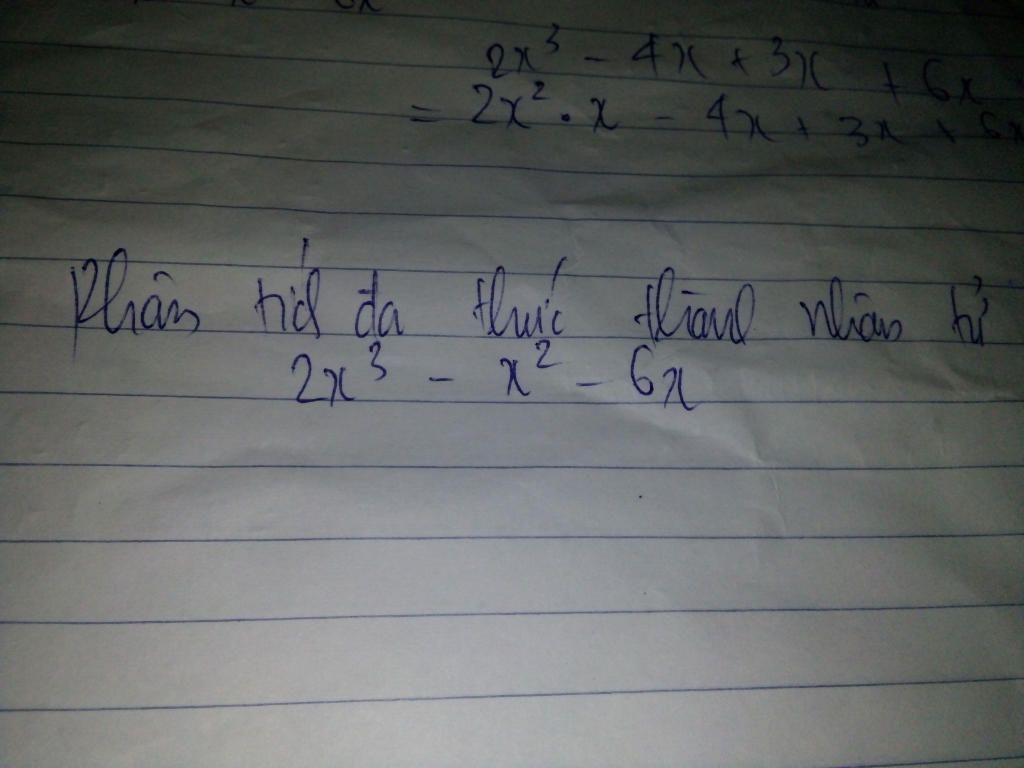 2x³ - 4x + 3x + 6x
= 2x² · x - 4x + 3x + 6x
Phân tích đa thức thành nhân tử
2x³ - x² - 6x